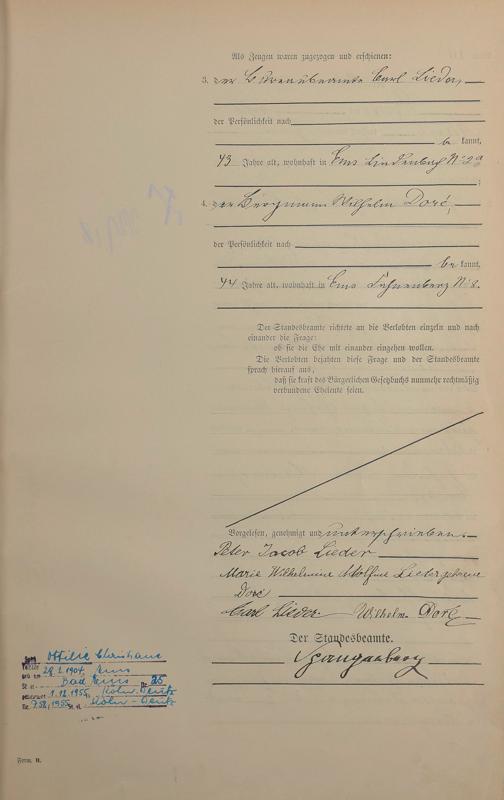 Als Zeugen waren zugezogen und erschienen:
3. der Carl Lieder,
der Persönlichkeit nach
be kannt,
43 Jahre alt, wohnhaft in Ems Lindenbach No 29
;
4. der Bergmann Wilhelm Doré,
der Persönlichkeit nach
be kannt,
44 Jahre alt, wohnhaft in Ems No 8.
Der Standesbeamte richtete an die Verlobten einzeln und nach
einander die Frage:
ob sie die Ehe mit einander eingehen wollen.
Die Verlobten bejahten diese Frage und der Standesbeamte
sprach hierauf aus,
daß sie kraft des Bürgerlichen Gesetzbuchs nunmehr rechtmäßig
verbundene Eheleute seien.
Vorgelesen, genehmigt und unterschrieben.
Peter Jacob Lieder
Marie Wilhelmine Adolfine Lieder geborene
Doré
Carl Lieder Wilhelm Doré
Der Standesbeamte.
Spangenberg
Ottilie Christiane
29.2.1904, Ems
Bad Ems Nr. 25
1.12.1955, Köln-Deutz
Nr. 758/1955 St.A. Köln-Deutz
Form. B.